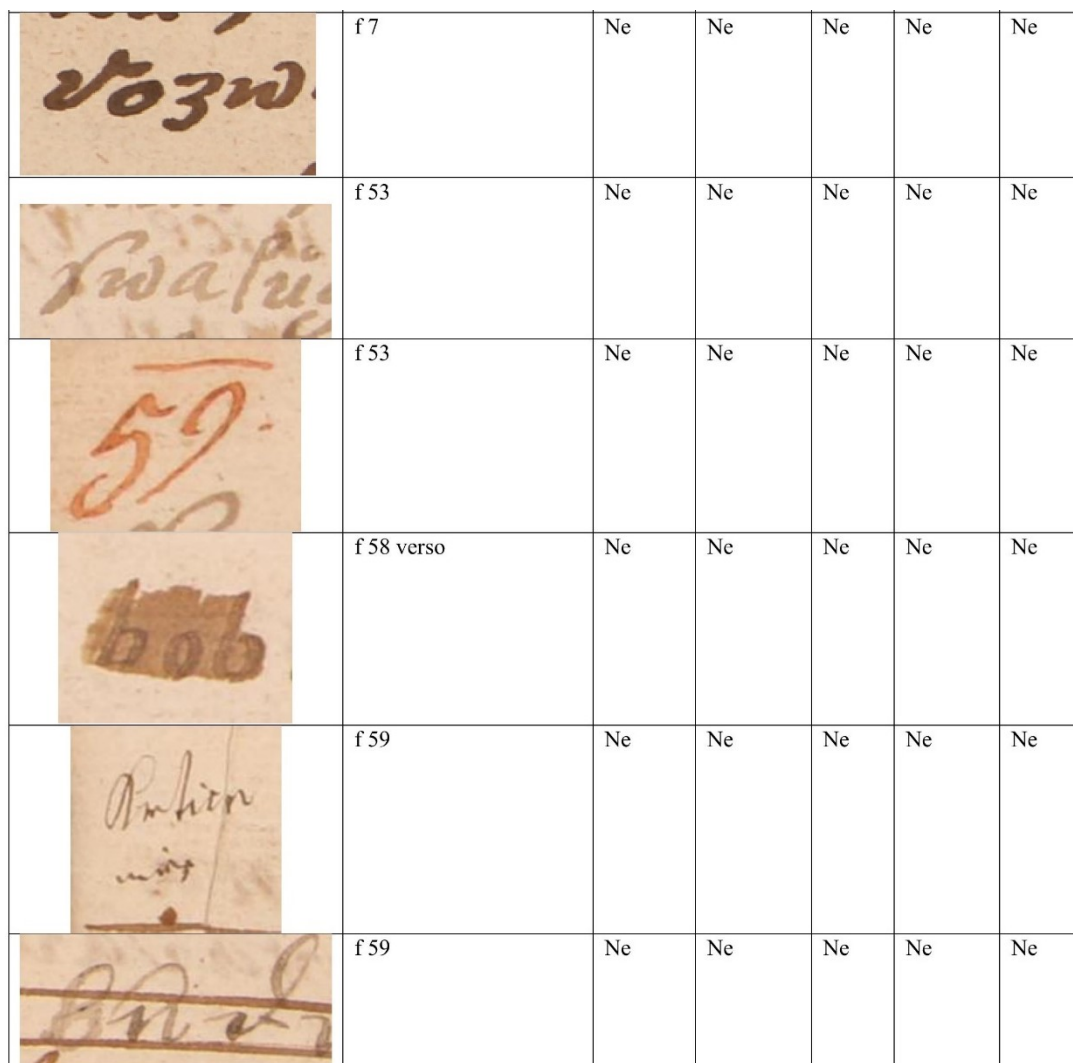 f 7 Ne Ne Ne Ne Ne
f 53 Ne Ne Ne Ne Ne
59.
f 53 Ne Ne Ne Ne Ne
bob
f 58 verso Ne Ne Ne Ne Ne
f 59 Ne Ne Ne Ne Ne
f 59 Ne Ne Ne Ne Ne